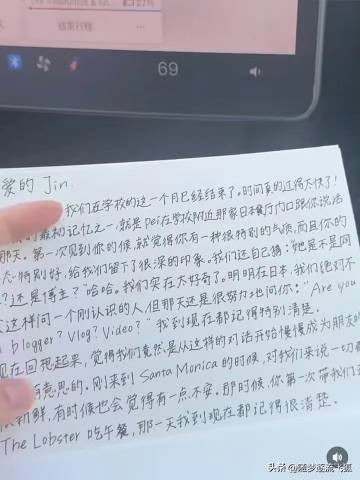 结束行程
69
爱的 Jin.
我们在学校的这一个月已经结束了。时间真的过得太快了！
最初记忆之一，就是Dei在学校附近那家日本餐厅门口跟你说话
那天。第一次见到你的时候，就觉得你有一种很特别的气质，而且你的
特别好，给我们留了很深的印象。我们还自己猜：“她是不是网
？还是博主？”哈哈。我们实在太好奇了。明明在日本，我们绝对不
这样问一个刚认识的人，但那天还是很努力地问你：“Are you
blogger? Vlog? Video?” 我到现在都记得特别清楚。
现在回想起来，觉得我们竟然是从这样的对话开始慢慢成为朋友
有意思的。刚来到 Santa Monica 的时候，对我们来说一切都
新鲜，有时候也会觉得有一点不安。那时候，你第一次带我们去
The Lobster 吃午餐，那一天我到现在都记得很清楚。
头条 @随梦逐流飞狐